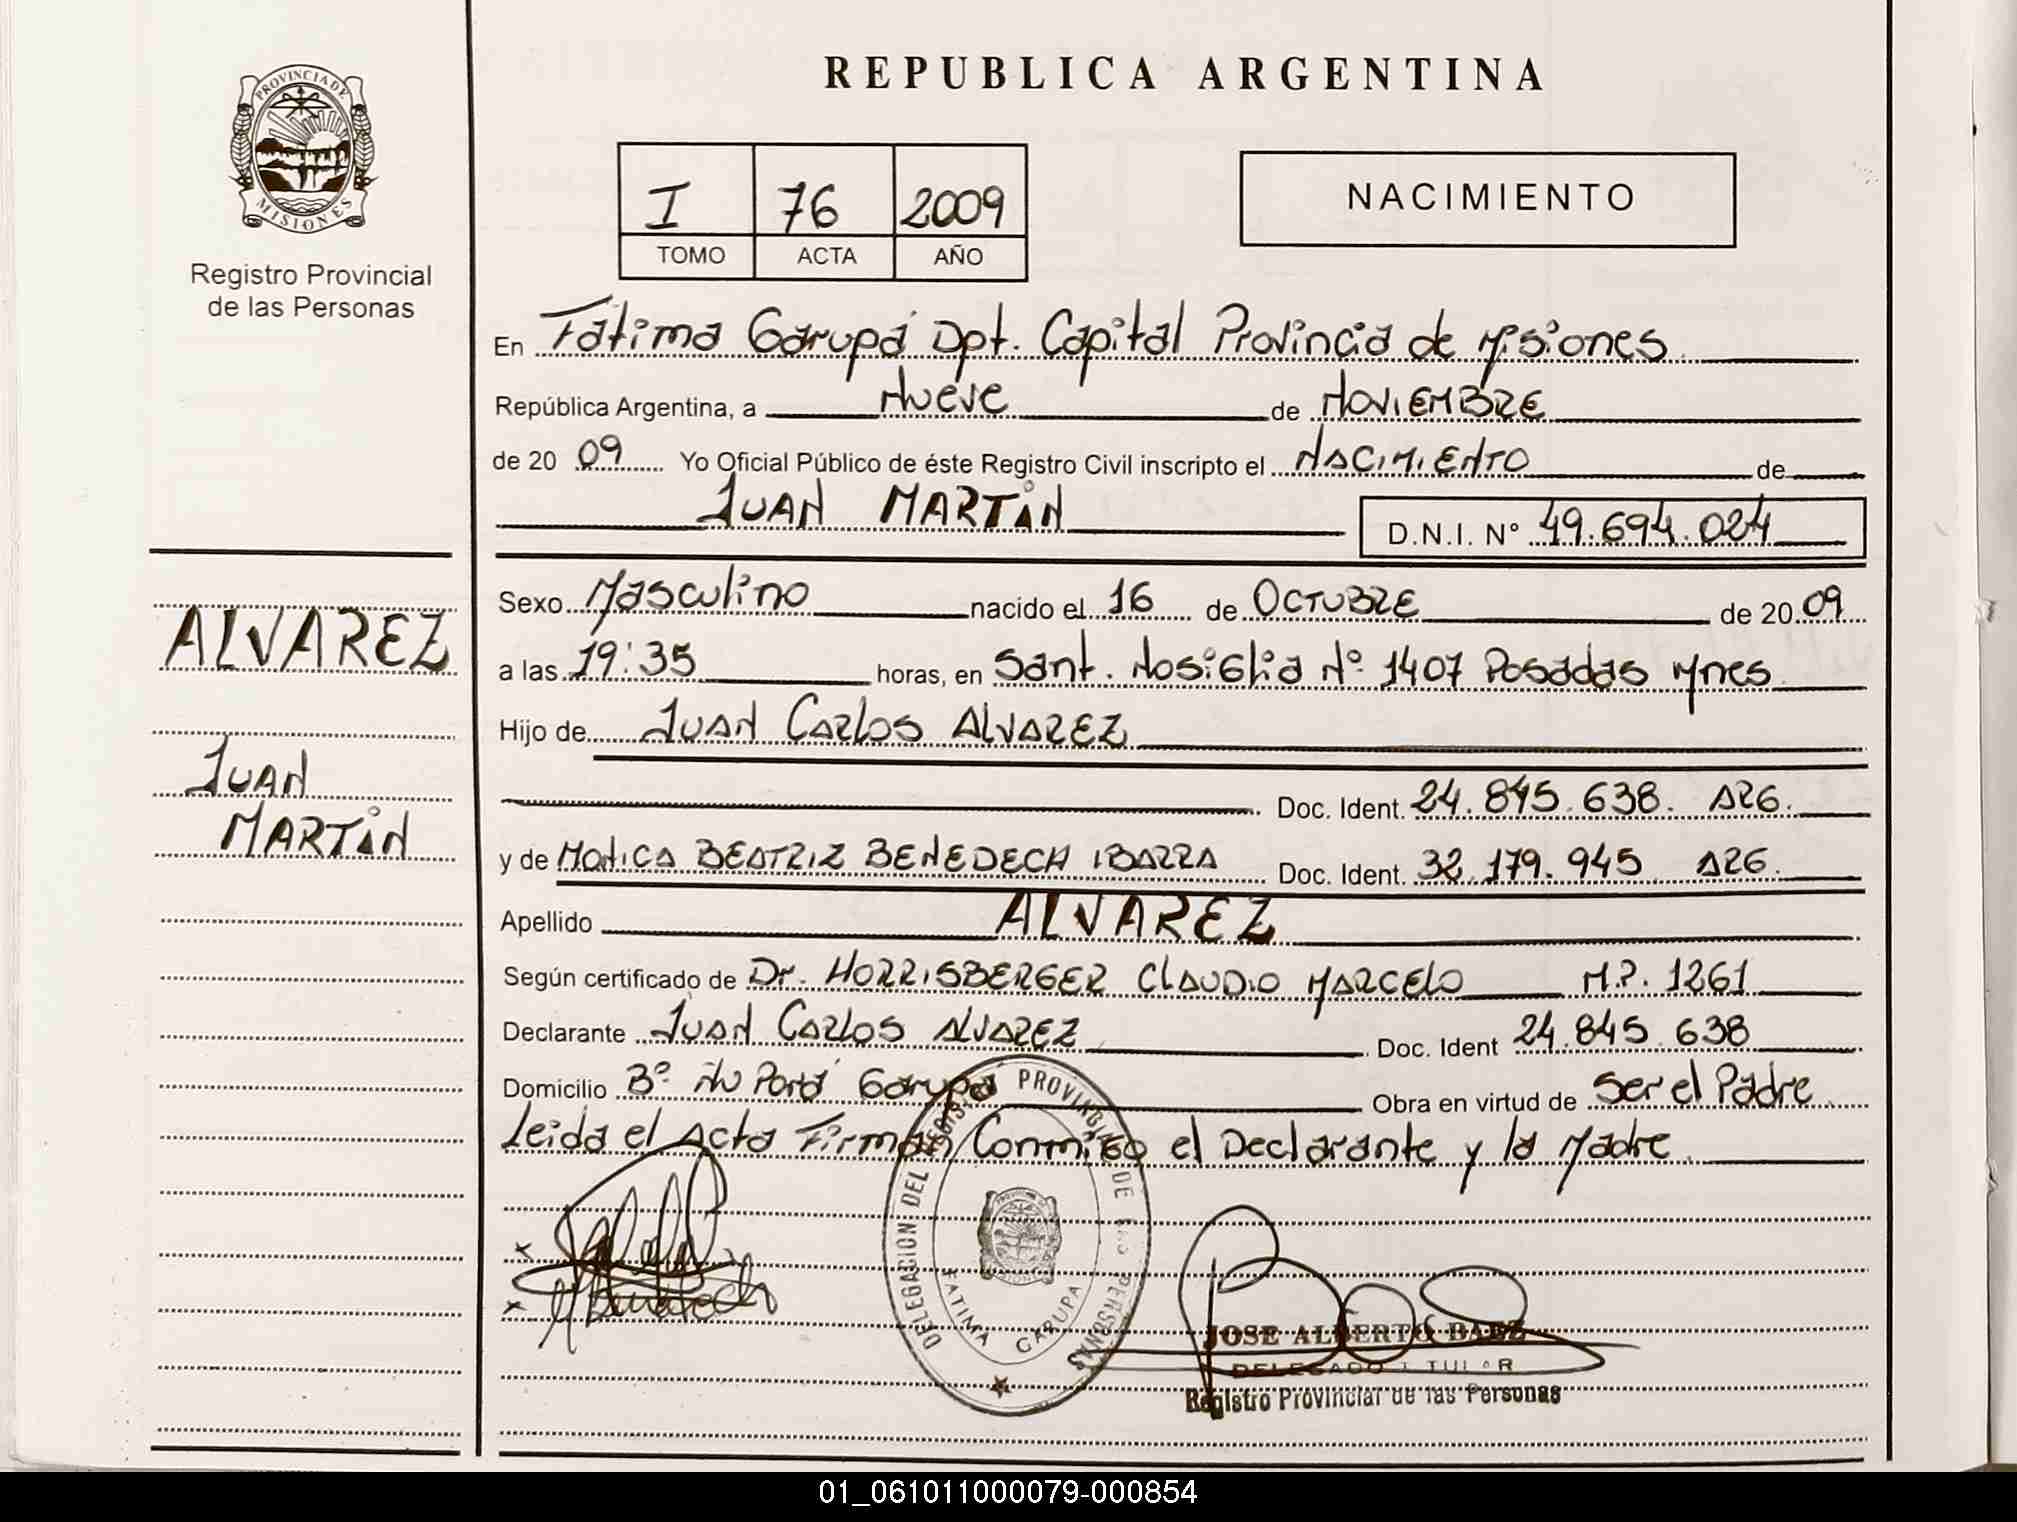 REPUBLICA ARGENTINA
PROVINCIA DE
MISIONES
Registro Provincial
de las Personas
I 76 2009
TOMO ACTA AÑO
NACIMIENTO
En Fatima Garupá Dpt. Capital Provincia de Misiones
República Argentina, a Nueve de NOVIEMBRE
de 20 09 Yo Oficial Público de éste Registro Civil inscripto el NACIMIENTO de
JUAN MARTIN D.N.I. N° 49.694.024
ALVAREZ
JUAN
MARTIN
Sexo Masculino nacido el 16 de OCTUBRE de 20 09
a las 19:35 horas, en Sant. Nosiglia N° 1407 Posadas Mnes
Hijo de JUAN CARLOS ALVAREZ
Doc. Ident. 24.845.638. ARG.
y de MONICA BEATRIZ BENEDECH IBARRA Doc. Ident. 32.179.945 ARG.
Apellido ALVAREZ
Según certificado de Dr. HORRISBERGER CLAUDIO MARCELO M.P. 1261
Declarante JUAN CARLOS ALVAREZ Doc. Ident 24.845.638
Domicilio B° Ñu Porá Garupa Obra en virtud de Ser el Padre
Leida el Acta Firman Conmigo el Declarante y la Madre
DELEGACION DEL REGISTRO PROVINCIAL DE LAS PERSONAS
FATIMA GARUPA
JOSE ALBERTO BAEZ
DELEGADO TITULAR
Registro Provincial de las Personas
01_061011000079-000854